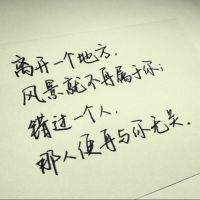 离开一个地方,
风景就不再属于你;
错过一个人,
那人便再与你无关.